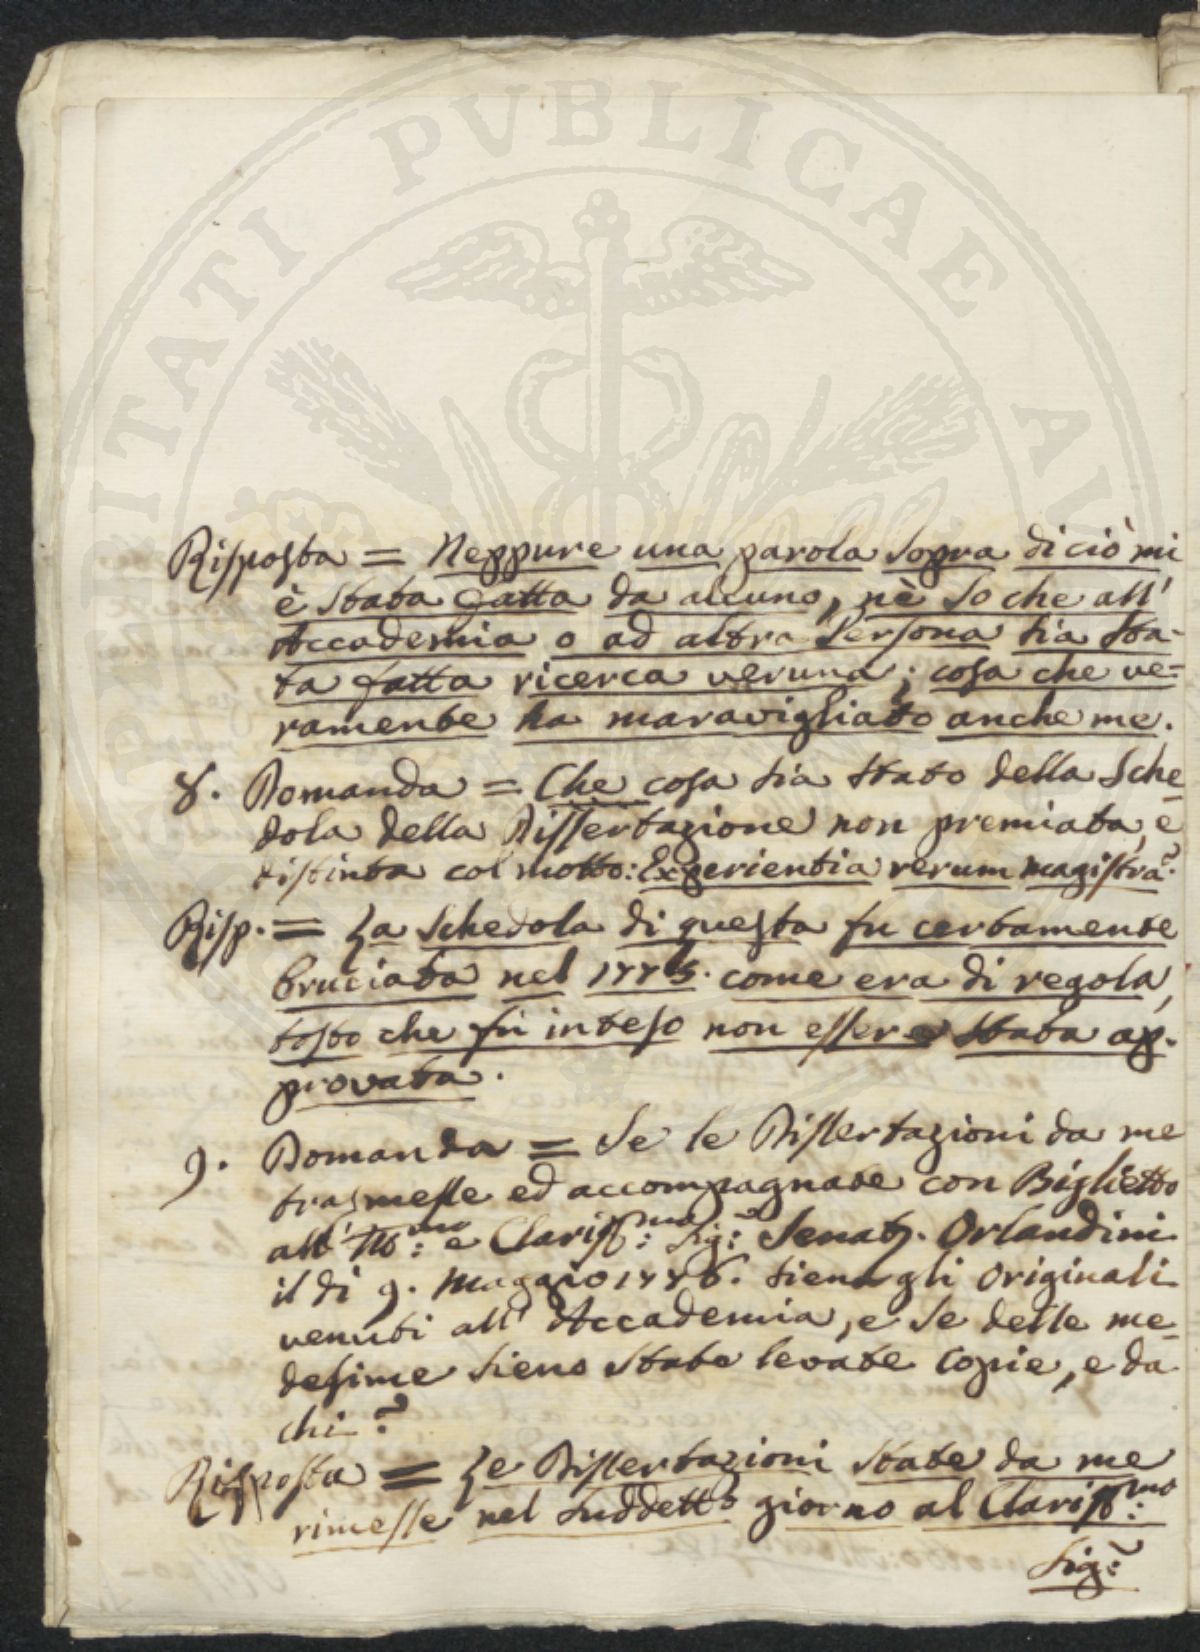 PROSPERITATI PVBLICAE AV
Risposta = Neppure una parola sopra di ciò mi
è stata fatta da alcuno, nè so che all'
Accademia o ad altra Persona sia sta-
ta fatta ricerca veruna; cosa che ve=
ramente ha maravigliato anche me.
8. Domanda = Che cosa sia stato della Sche-
dola della Dissertazione non premiata, e
distinta col motto: Experientia rerum magistra?
Risp. = La schedola di questa fu certamente
bruciata nel 1775. come era di regola,
tosto che fu inteso non essere stata ap-
provata.
9. Domanda = Se le Dissertazioni da me
trasmesse ed accompagnate con Biglietto
all' Ill:mo e Clariss:mo Sig: Senat. Orlandini
il di 9. Maggio 1776. sieno gli Originali
venuti all' Accademia, e se delle me-
desime sieno state levate copie, e da
chi?
Risposta = Le Dissertazioni state da me
rimesse nel suddetto giorno al Clariss:mo
Sig: